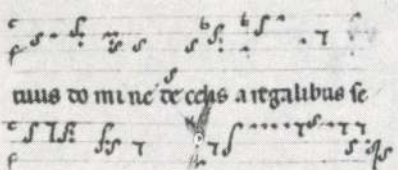 tuus do mi ne de celis a regalibus se